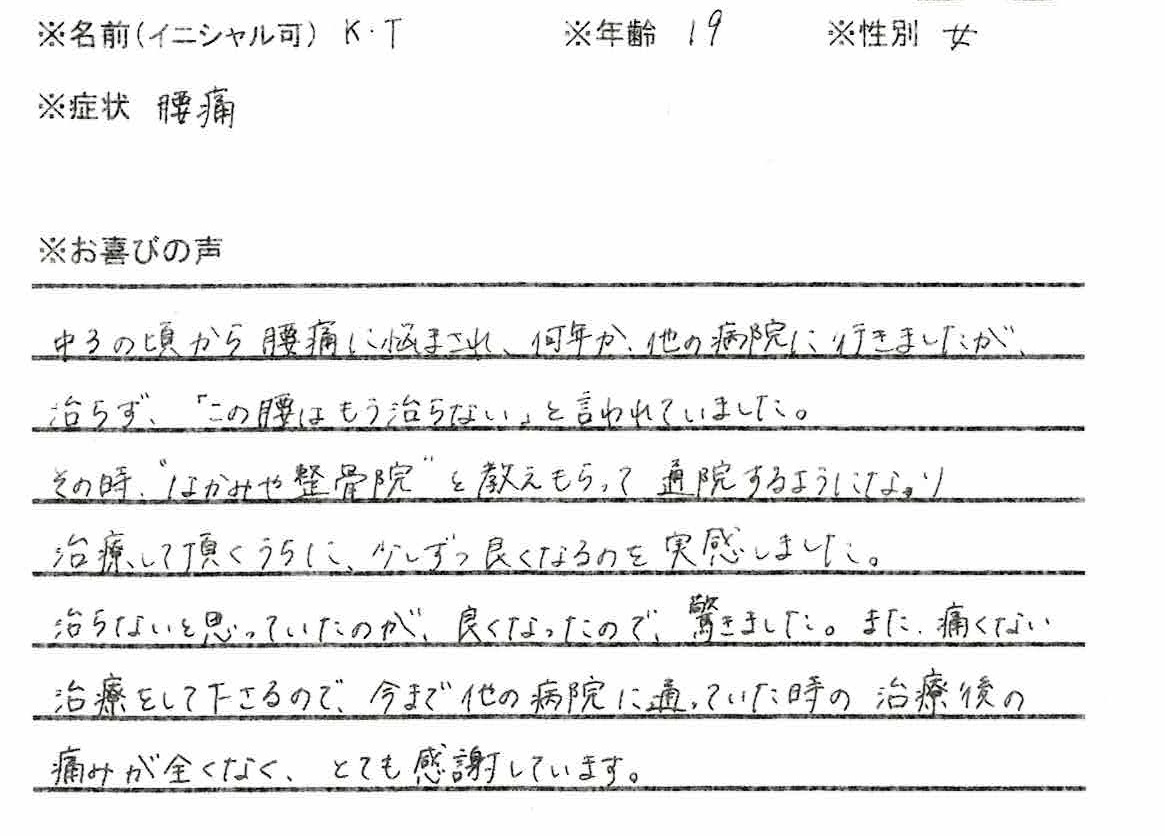 ※名前(イニシャル可) K・T ※年齢 19 ※性別 女
※症状 腰痛
※お喜びの声
中3の頃から腰痛に悩まされ、何年か、他の病院に行きましたが、
治らず、「この腰はもう治らない」と言われていました。
その時、“なかみや整骨院”を教えもらって通院するようになり
治療して頂くうちに、少しずつ良くなるのを実感しました。
治らないと思っていたのが、良くなったので、驚きました。また、痛くない
治療をして下さるので、今まで他の病院に通っていた時の治療後の
痛みが全くなく、とても感謝しています。